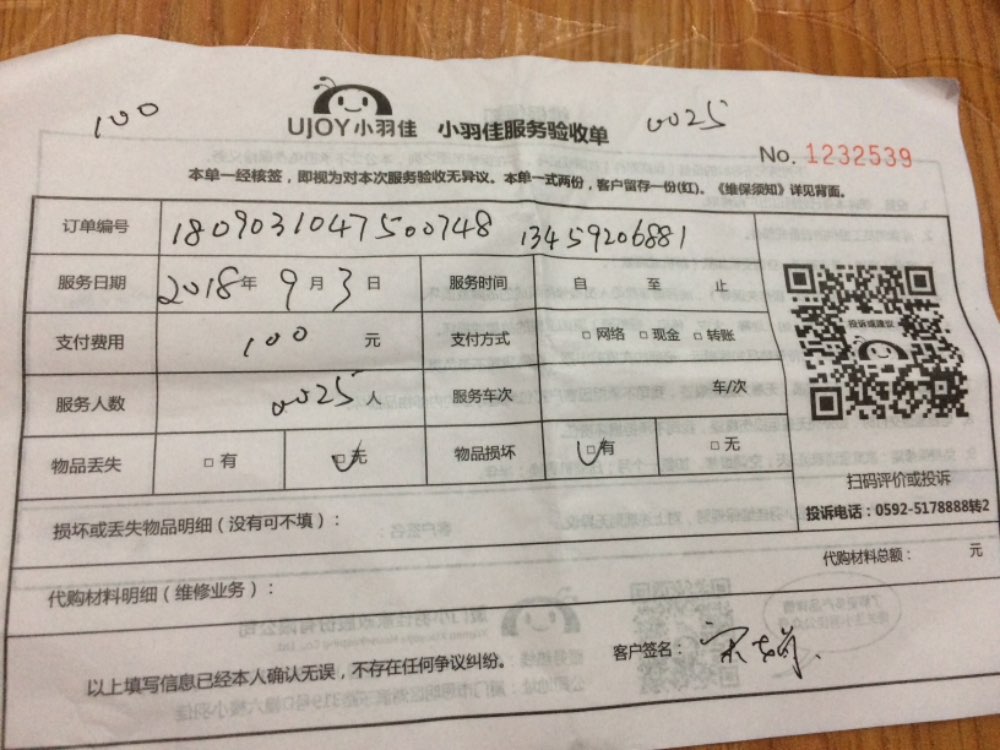 100
UJOY小羽佳 小羽佳服务验收单
0025
No. 1232539
本单一经核签，即视为对本次服务验收无异议。本单一式两份，客户留存一份(红)。《维保须知》详见背面。
订单编号 1809031047500748 13459206881
服务日期 2018年 9月 3日 服务时间 自 至 止
支付费用 100 元 支付方式 □网络 □现金 □转账
服务人数 0025 人 服务车次 车/次
物品丢失 □有 □无 物品损坏 □有 □无
投诉或建议
扫码评价或投诉
投诉电话：0592-5178888转2
损坏或丢失物品明细（没有可不填）：
代购材料明细（维修业务）： 代购材料总额： 元
以上填写信息已经本人确认无误，不存在任何争议纠纷。 客户签名：